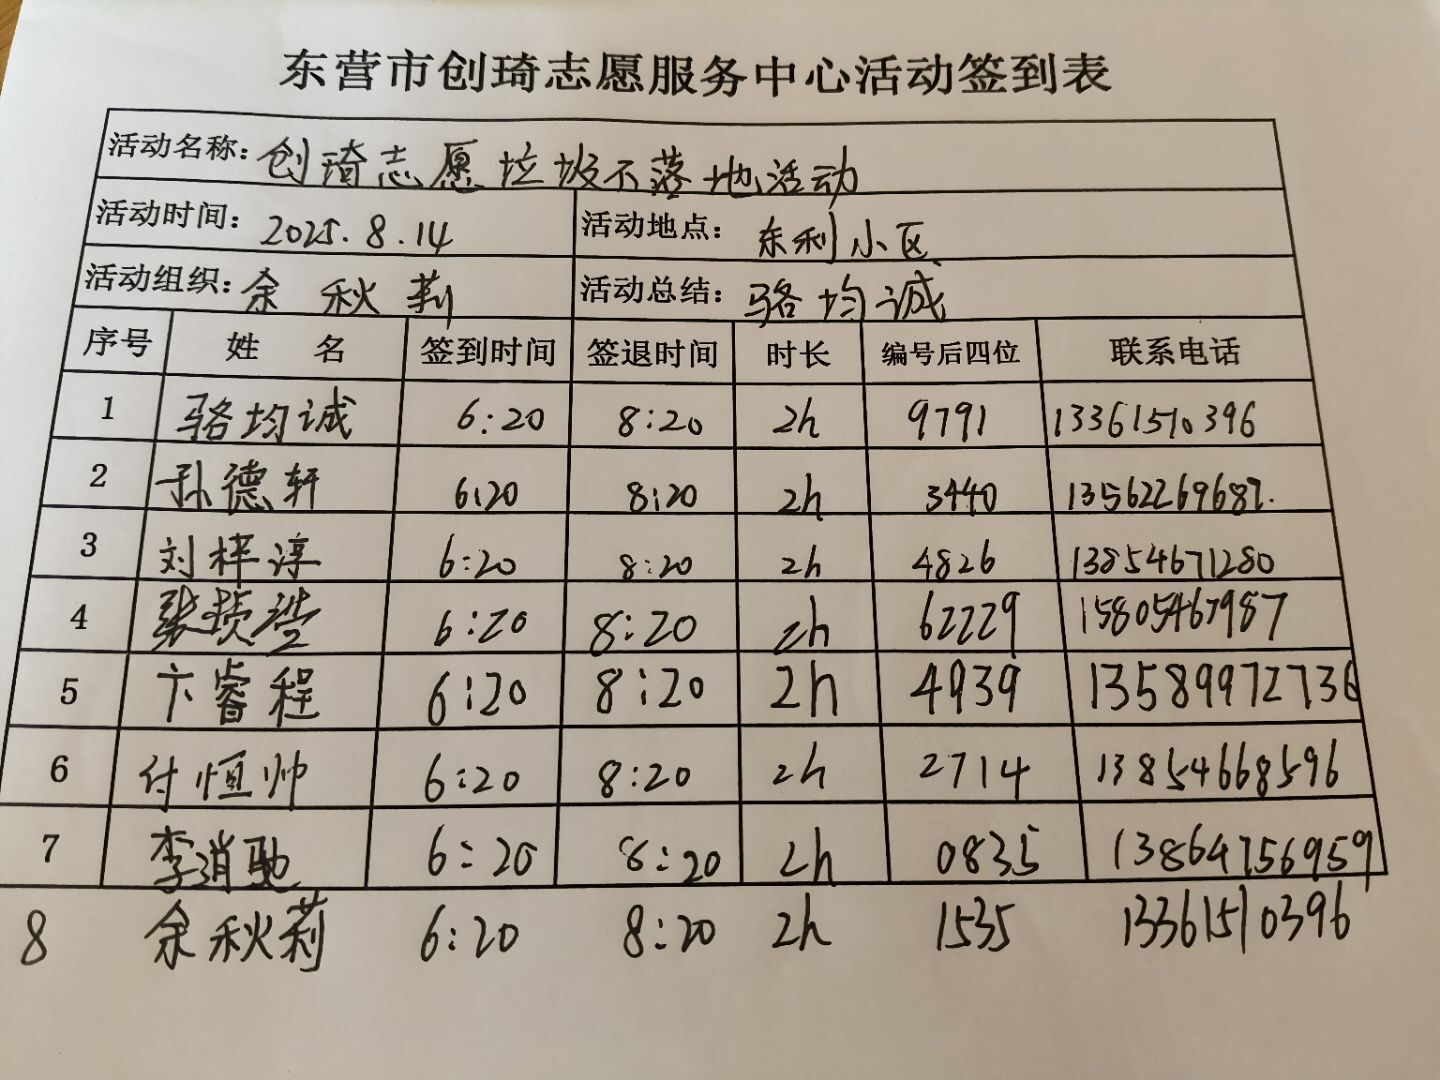 东营市创琦志愿服务中心活动签到表
活动名称: 创琦志愿垃圾不落地活动
活动时间: 2025.8.14 活动地点: 东利小区
活动组织: 余秋莉 活动总结: 骆均诚
序号 姓 名 签到时间 签退时间 时长 编号后四位 联系电话
1 骆均诚 6:20 8:20 2h 9791 13361510396
2 孙德轩 6:20 8:20 2h 3440 13562269687.
3 刘梓淳 6:20 8:20 2h 4826 13854671280
4 6:20 8:20 2h 62229 15805467987
5 卞睿程 6:20 8:20 2h 4939 13589972736
6 付恒帅 6:20 8:20 2h 2714 13854668596
7 李消驰 6:20 8:20 2h 0835 13864756959
8 余秋莉 6:20 8:20 2h 1535 13361510396